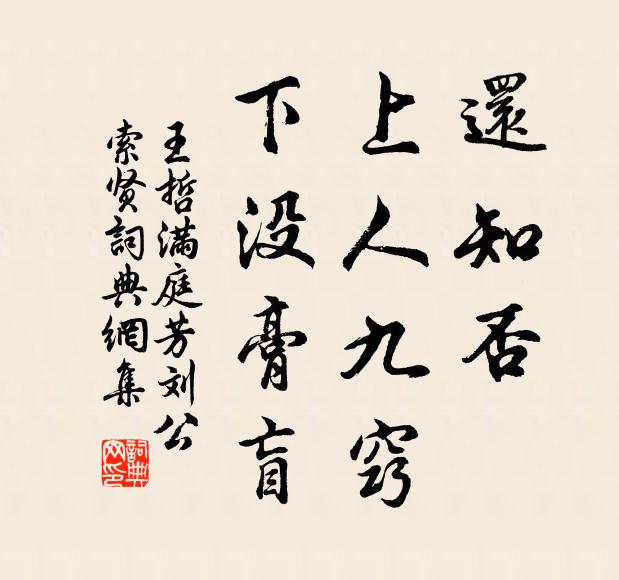 還知否
上人九竅
下没膏肓
王哲滿庭芳刘公
索贤詞典網集
詞典
网印